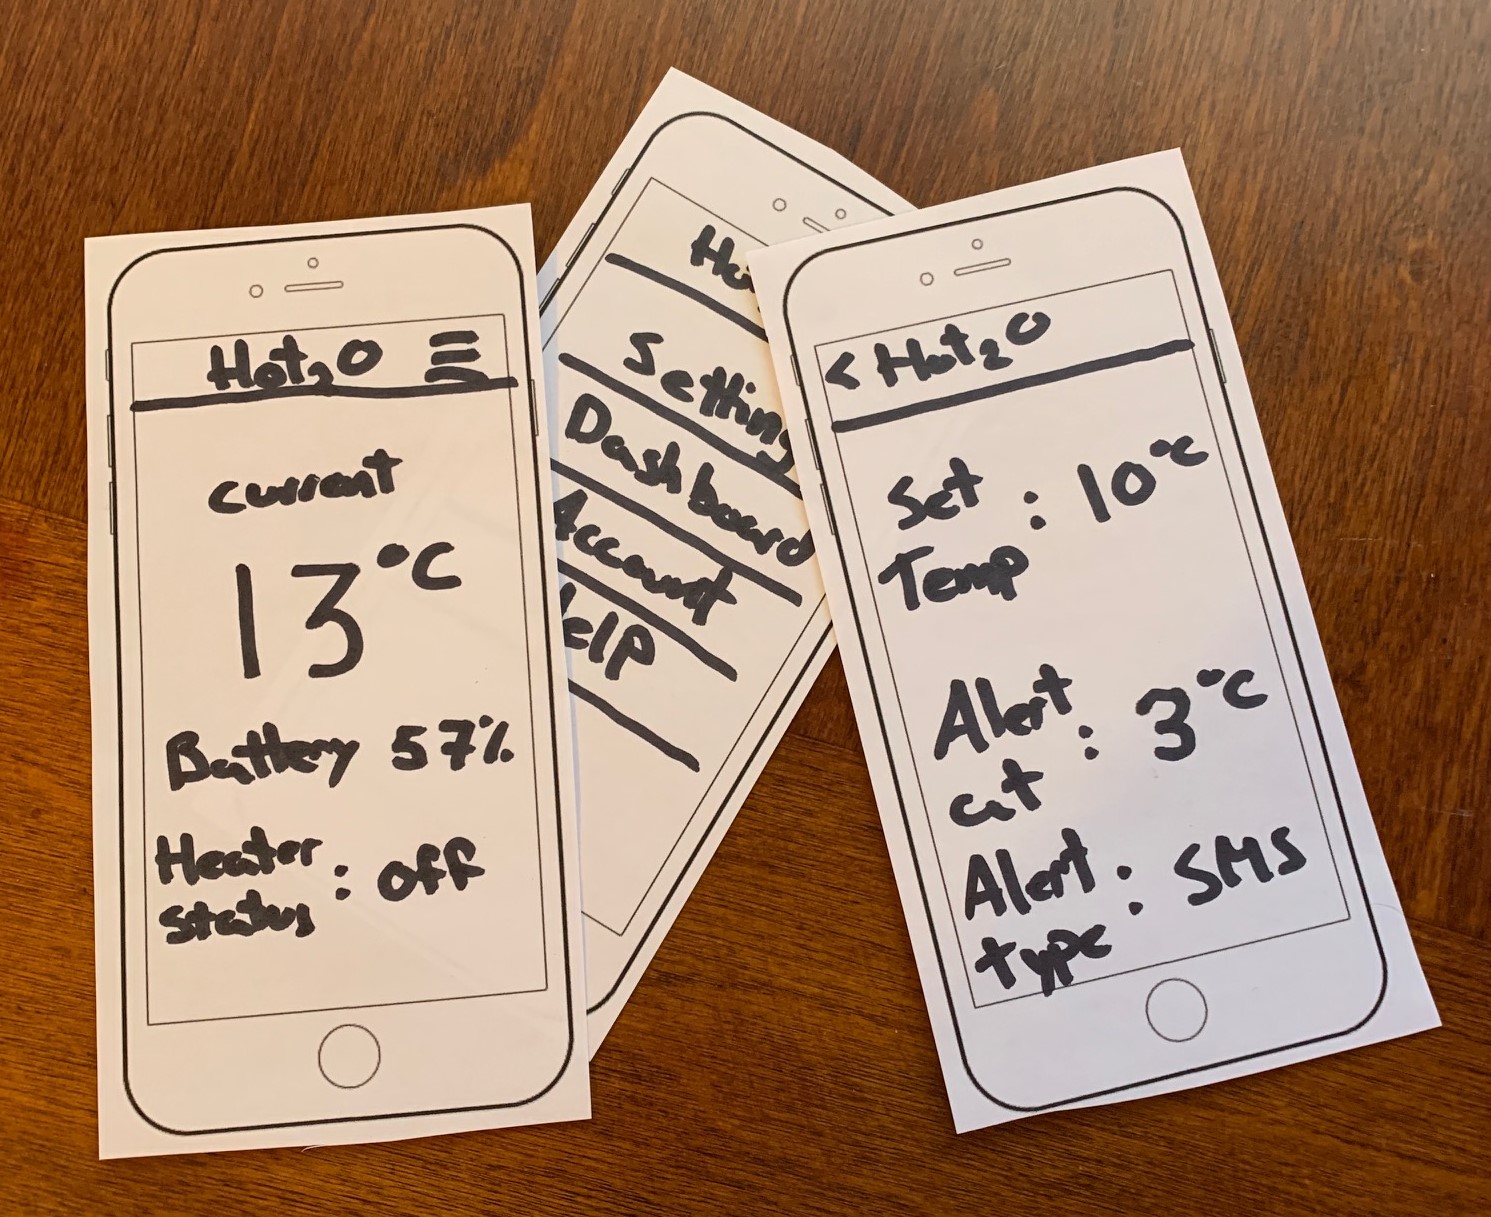 Hot₂O ☰
current
13°C
Battery 57%
Heater
status : off
Ho
Setting
Dashboard
Account
elp
< Hot₂O
Set
Temp : 10°C
Alert
at : 3°C
Alert
type : SMS